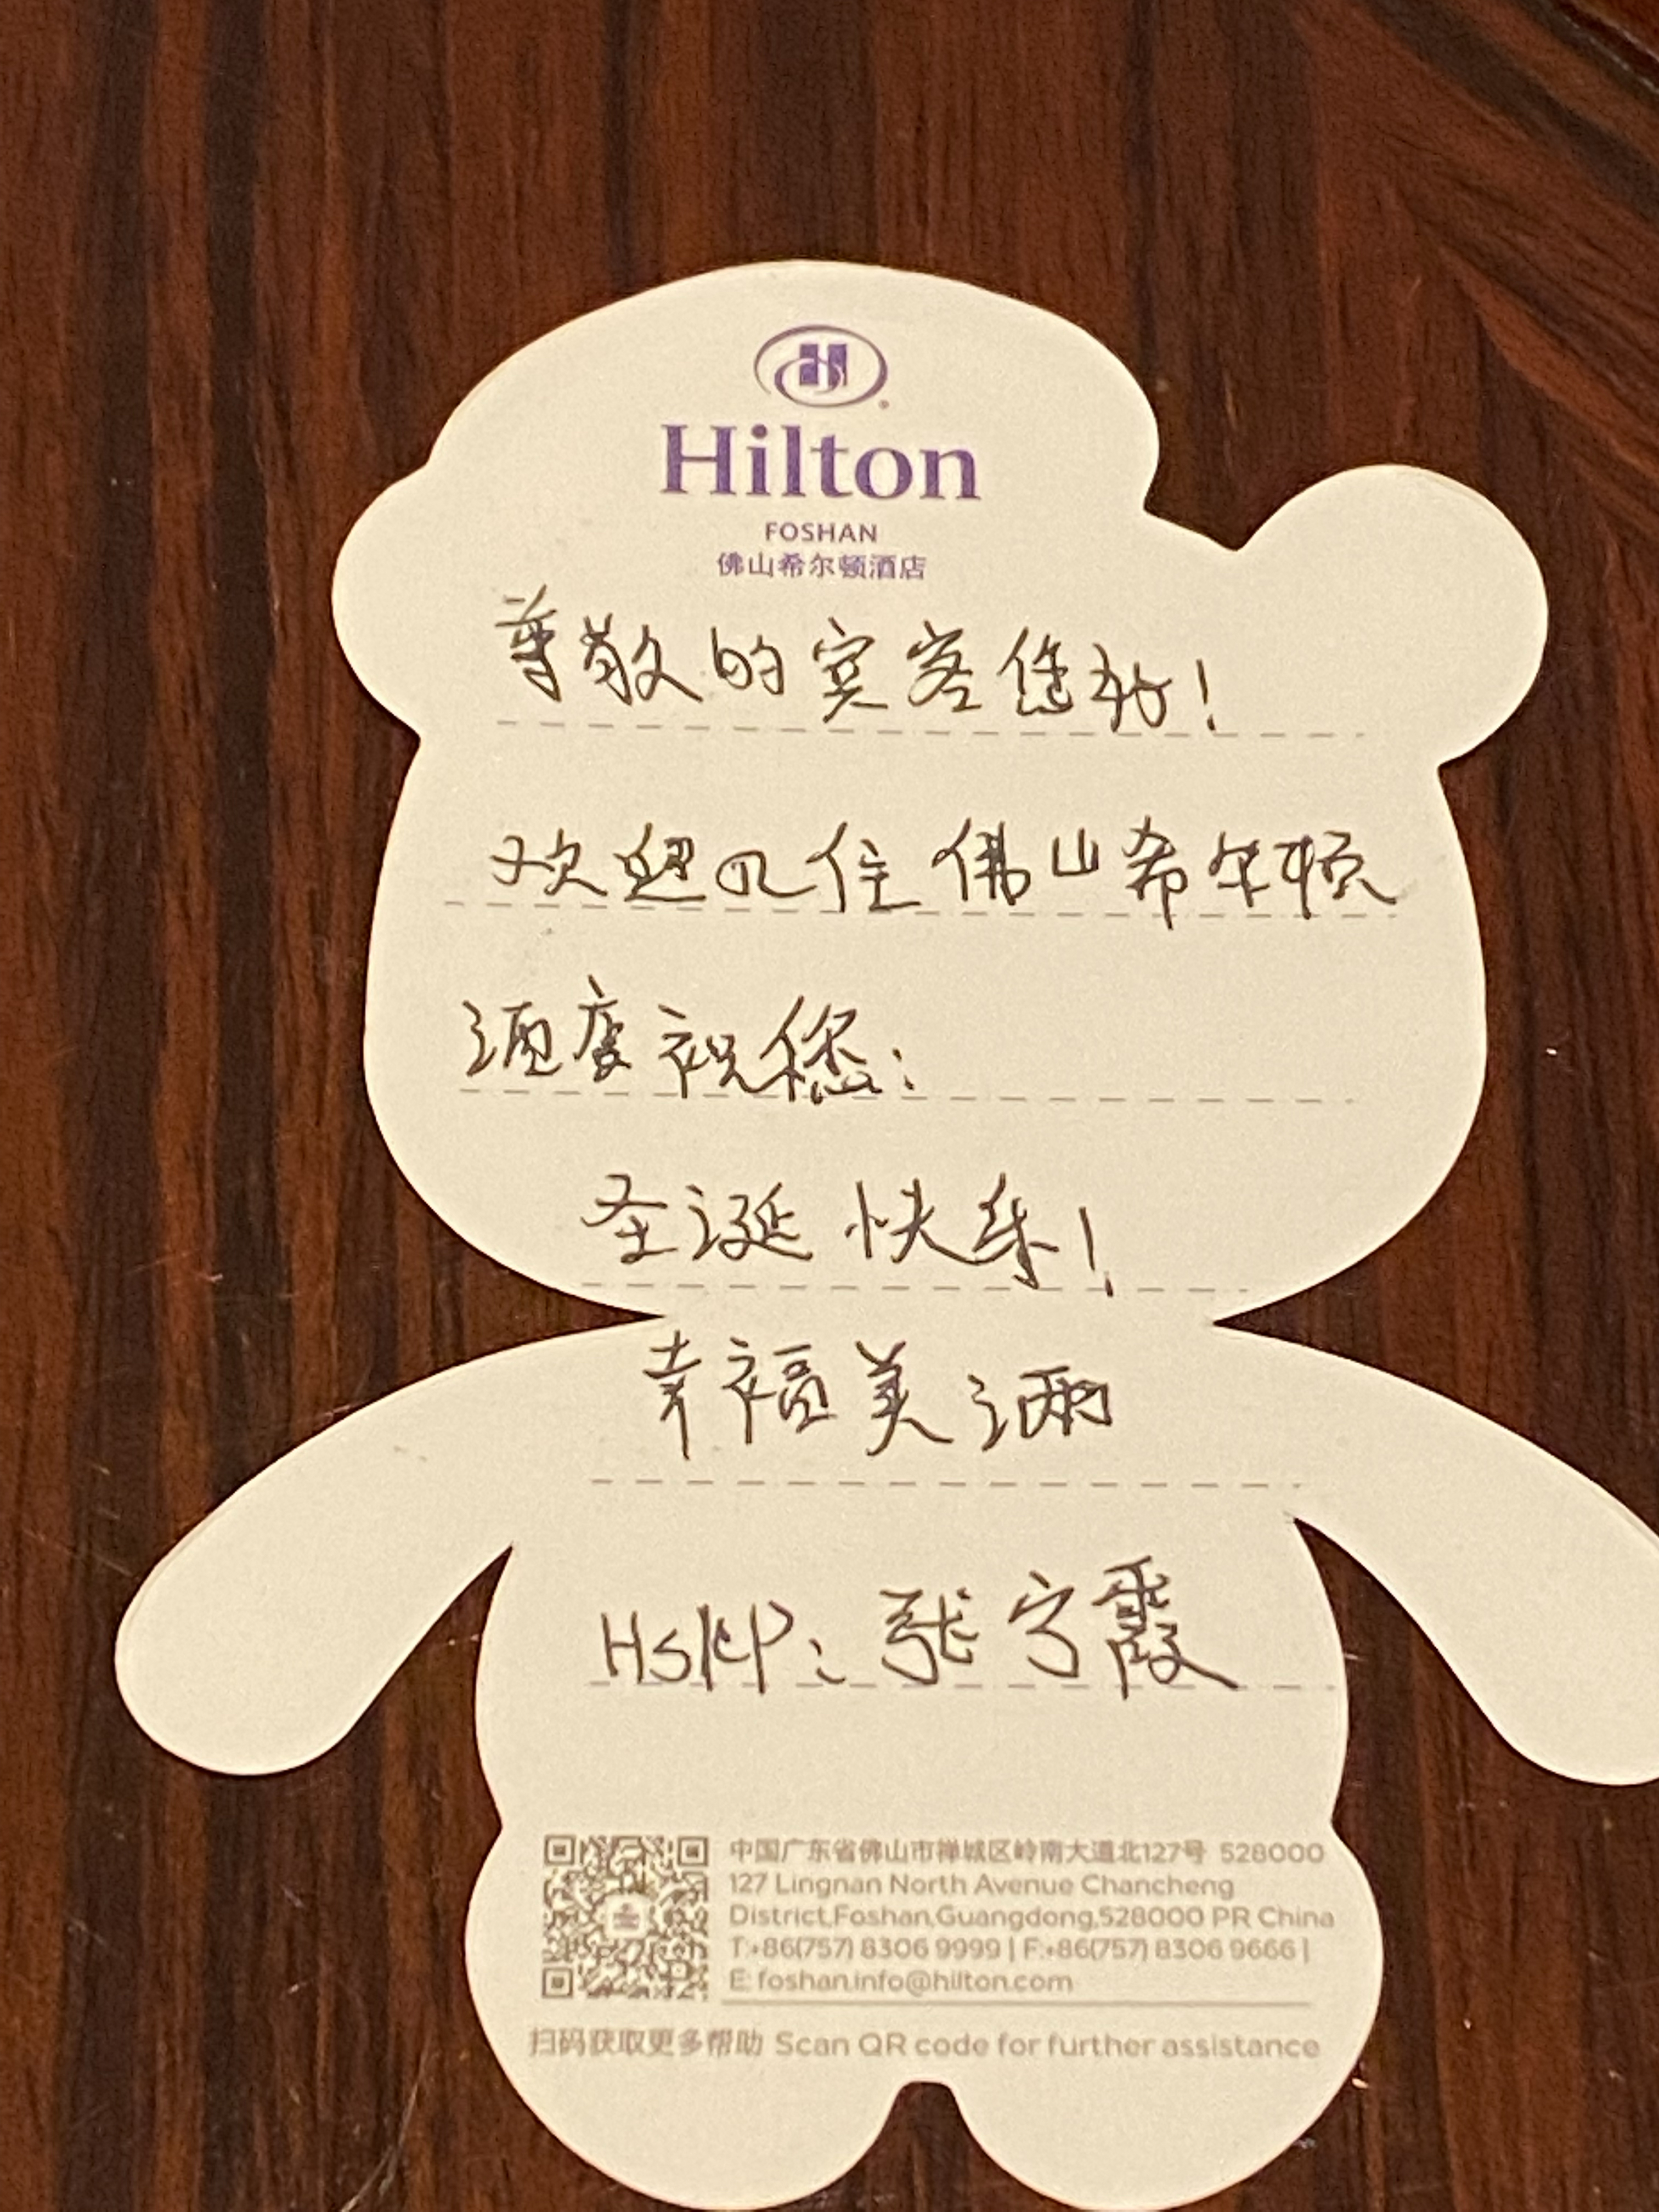 Hilton
FOSHAN
佛山希尔顿酒店
尊敬的宾客您好！
欢迎入住佛山希尔顿
酒店祝您：
圣诞快乐！
幸福美满
HSKP：张宁霞
中国广东省佛山市禅城区岭南大道北127号 528000
127 Lingnan North Avenue Chancheng
District,Foshan,Guangdong,528000 PR China
T:+86(757) 8306 9999 | F:+86(757) 8306 9666 |
E: foshan.info@hilton.com
扫码获取更多帮助 Scan QR code for further assistance